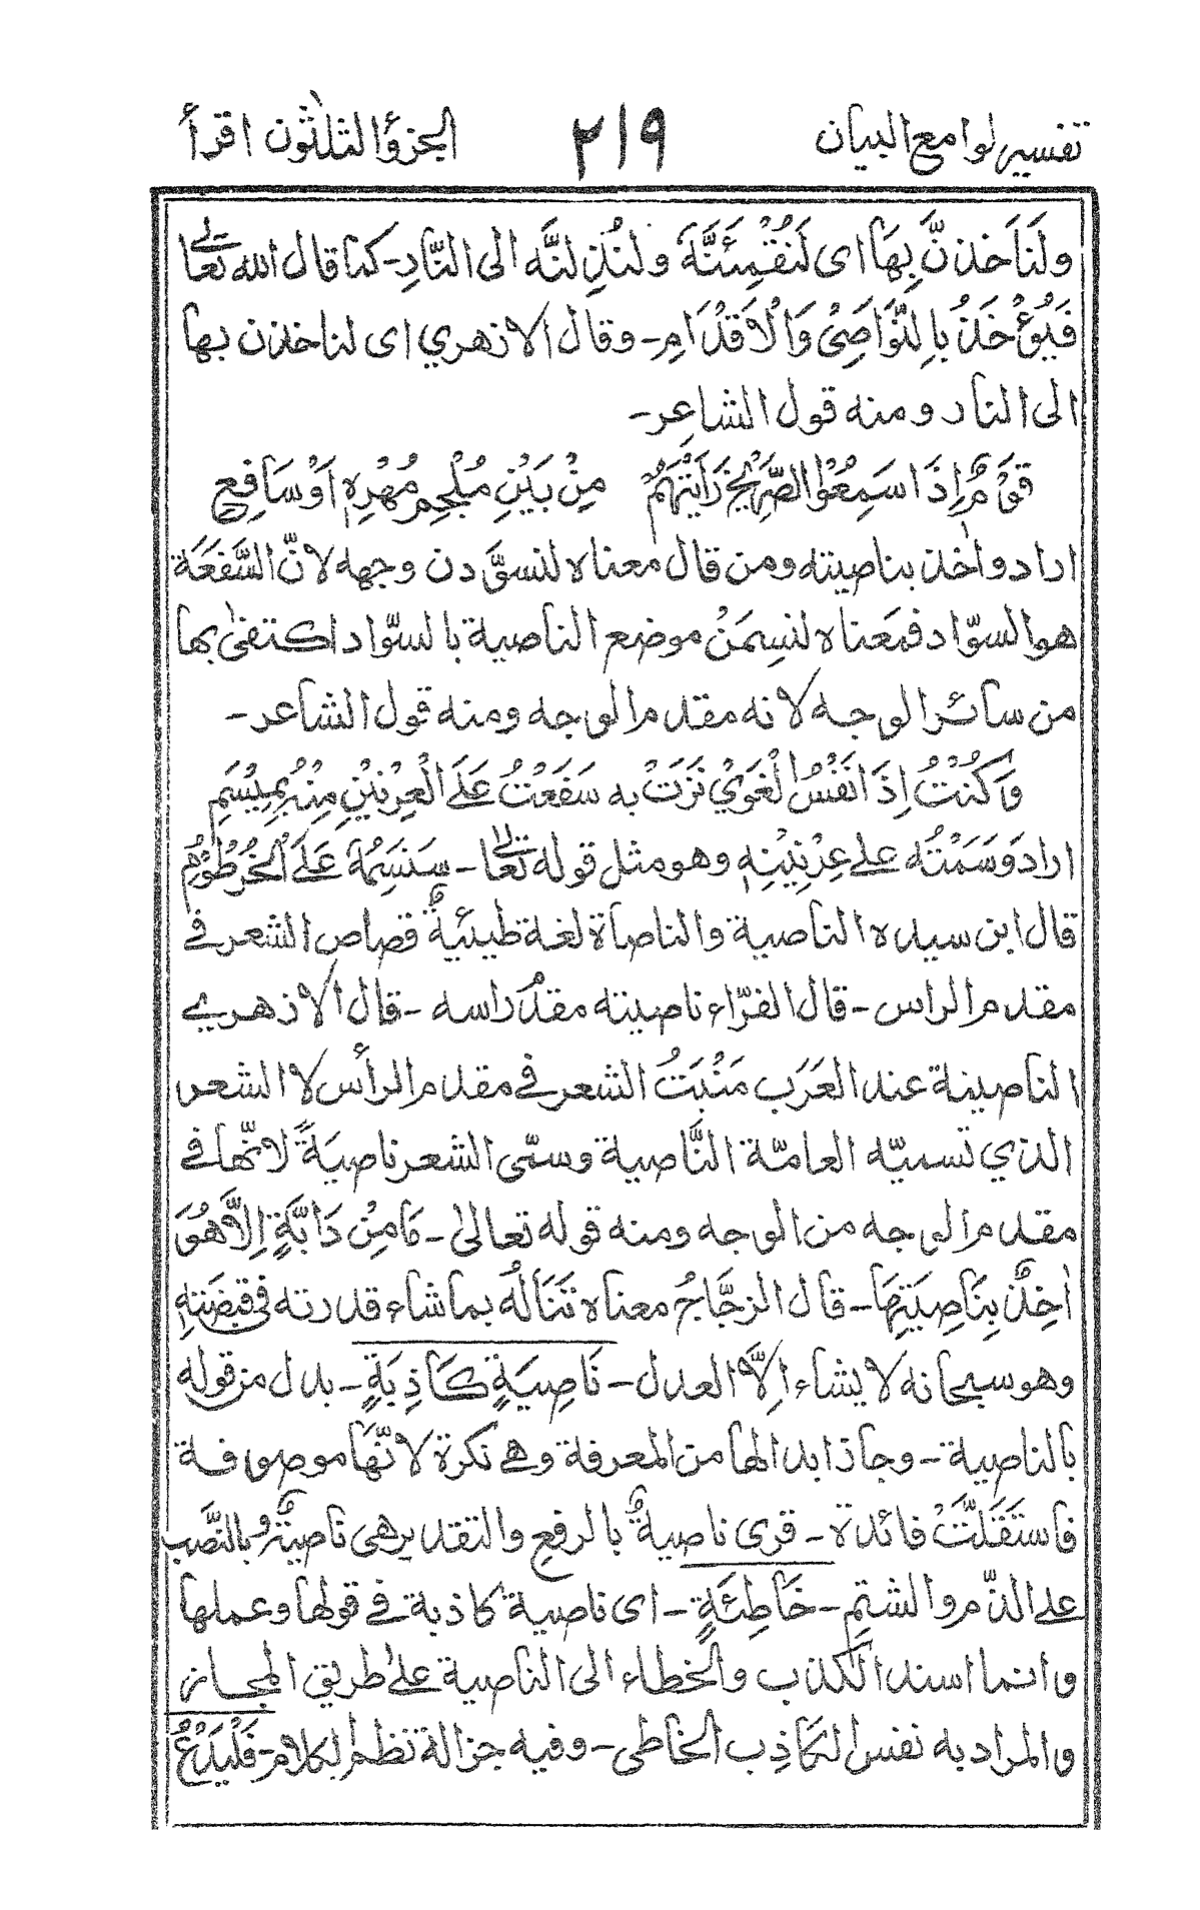 تفسير لوامع البيان ٢١٩ الجزؤ الثلثون اقرأ
ولَنَاَخذنَّ بِهَا اى لَنُقْمِئَنَّهٗ ولنُذِلنَّه الى النّادِ - كما قال الله تعالى
فَيُؤْخَذُ بِالنَّوَاصِىْ وَالْاَقْدَامِ - وقال الازهري اى لناخذن بها
الى النار ومنه قول الشاعِر -
قَوْمٌ اِذَا سَمِعُوْا الصَّرِيْخَ رَاَيْتَهُمْ مِنْ بَيْنِ مُلْجِمِ مُهْرِهٖ اَوْ سَافِعِ
اراد واٰخذ بناصيته ومن قال معناه لنسوَّدن وجهه لانّ السَّفعَة
هو السوّاد فمعناه لنسِمَنْ موضع الناصية بالسوّاد اكتفىٰ بها
من سائر الوجه لانه مقدم الوجه ومنه قول الشاعر -
وَكُنْتُ اِذَا نَفْسُ الْغَوِيْ نَزَتْ به سَفَعْتُ عَلَى الْعِرْنِيْنِ مِنْهُ بِمِيْسَمِ
اراد وَسَمْتُه على عِرْنِيْنِهٖ وهو مثل قوله تعالىٰ - سَنَسِمُهٗ عَلَى الْخُرْطُوْمِ
قال ابن سيده الناصية والناصاة لغة طيئيةٌ قصاص الشعر فى
مقدم الراس - قال الفرّاء ناصيته مقدمُ راسه - قال الازهري
الناصينة عند العَرَب مَنْبَتُ الشعر فى مقدم الرأس لا الشعر
الذي تسميّه العامّة النَّاصية وسمّى الشعر ناصيَةً لانّها فى
مقدم الوجه من الوجه ومنه قوله تعالىٰ - مَا مِنْ دَابَّةٍ اِلَّا هُوَ
اٰخِذٌ بِنَاصِيَتِهَا - قال الزجَّاجُ معناه تَنَالُه بما شاء قدرته فى قبضَتهٖ
وهو سبحانه لا يشاء اِلَّا العدل - نَاصِيَةٍ كَاذِبَةٍ - بدل من قوله
بالناصية - وجاز ابدالها من المعرفة وهى نكرة لانّهَا موصوفة
فاستَقَلَّتْ فائدة - قرى ناصيةٌ بالرفع والتقدير هى ناصيةٌ وبالنَّصب
على الذّم والشتمِ - خَاطِئَةٍ - اى ناصية كاذبة فى قولها وعملها
وانما اسند الكذب والخطاء الى الناصية علىٰ طريق المجاز
والمراد به نفس الكاذب الخاطى - وفيه جزالة نظم الكلام - فَلْيَدْعُ